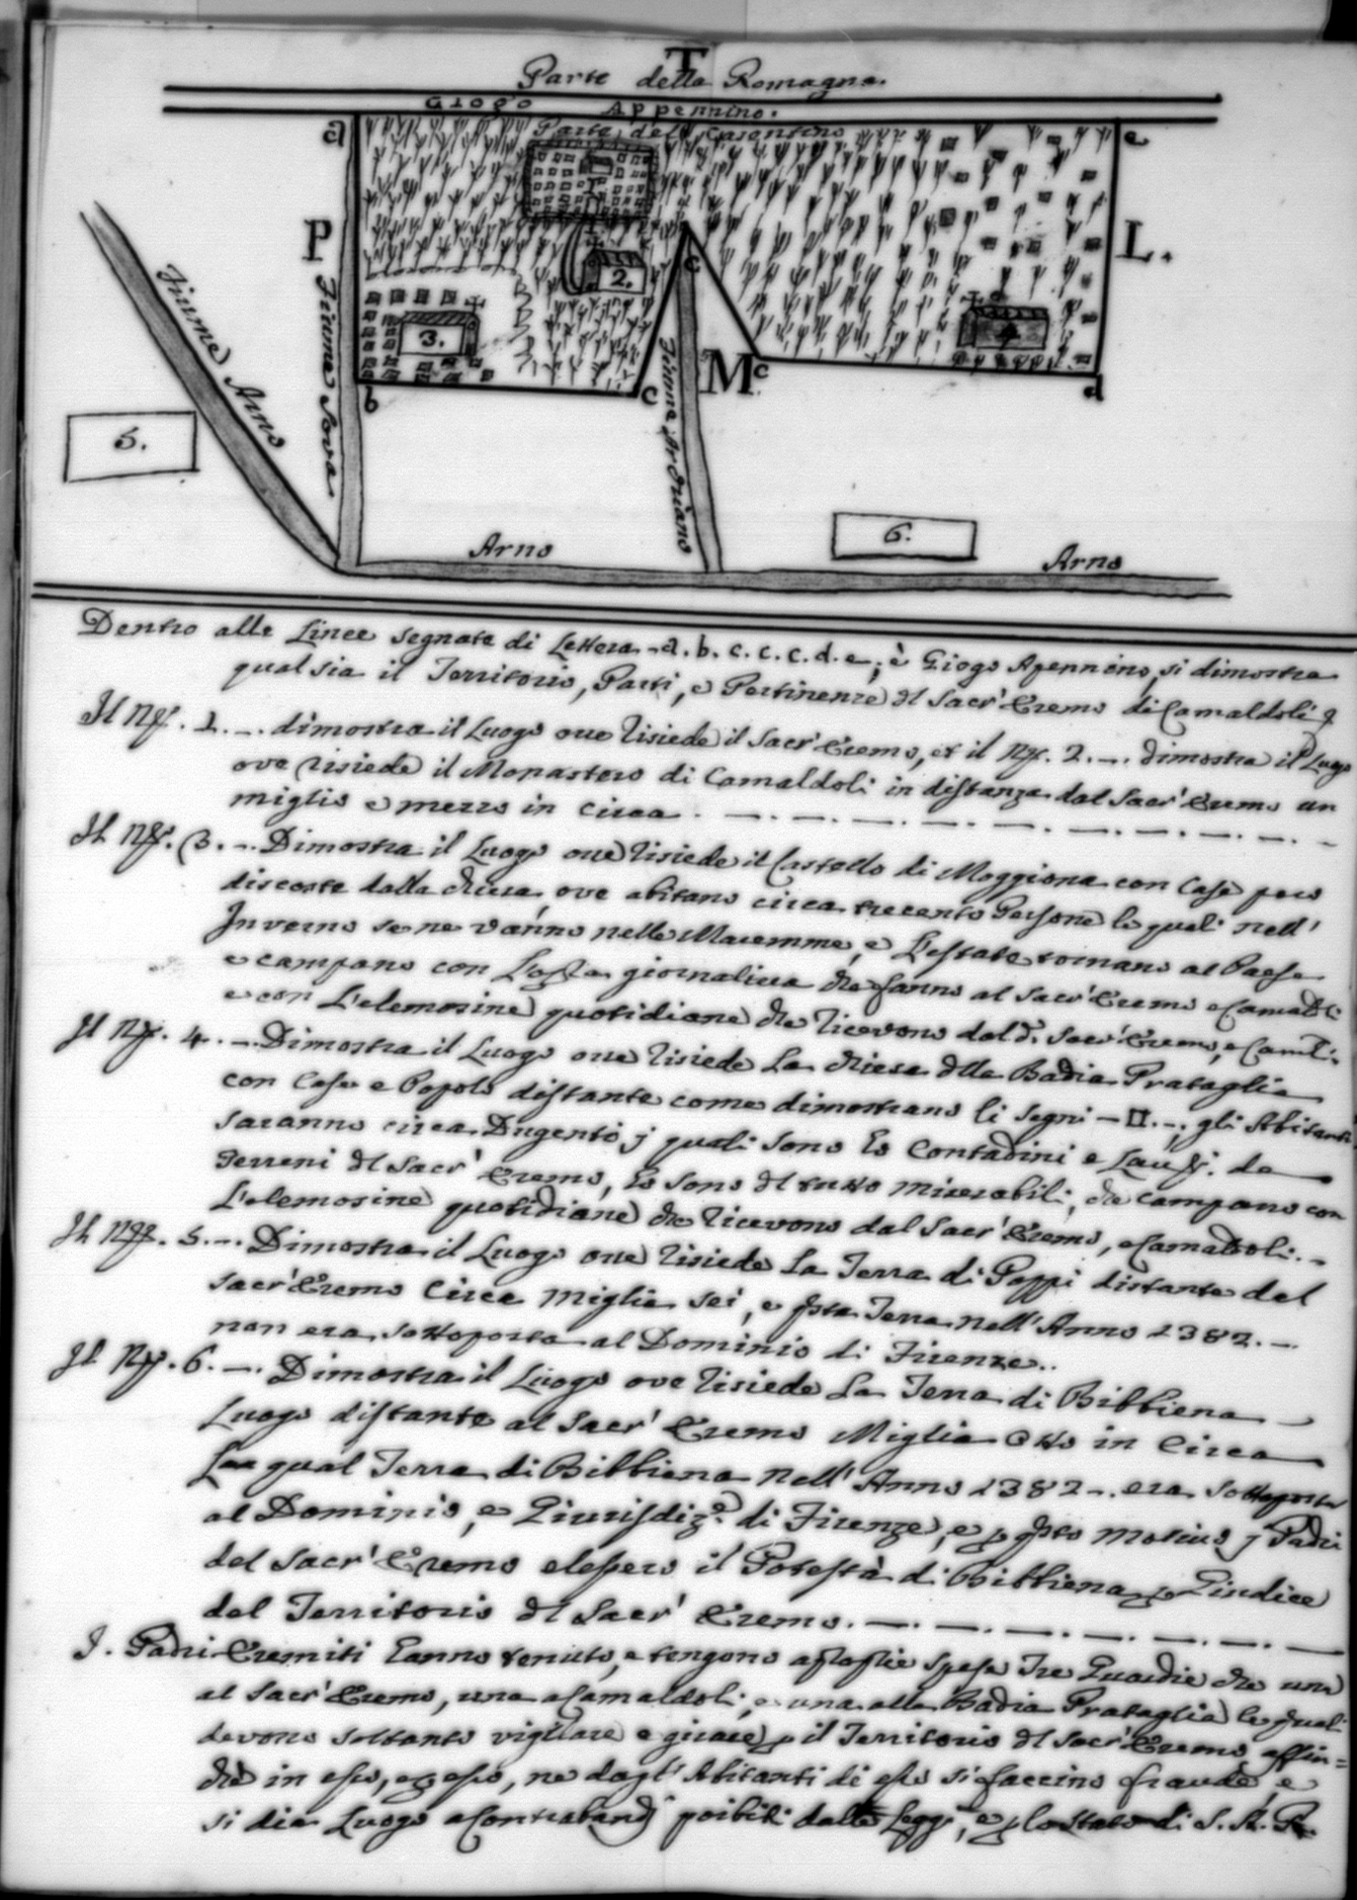 T
Parte della Romagna.
Giogo Appennino.
Parte del Casentino
a
e
P
L.
Fiume Arno
Fiume Sova
1
2.
3.
4
c
M
c
c
b
d
5.
Fiume Archiano
6.
Arno
Arno
Dentro alle Linee segnate di Lettera - a. b. c. c. c. d. e, è Giogo Apennino, si dimostra
qual sia il Territorio, Parti, e Pertinenze dl Sacr' Eremo di Camaldoli
Il Nº. 1. - . dimostra il Luogo ove risiede il Sacr' Eremo, et il Nº. 2. - . dimostra il Luogo
ove risiede il Monastero di Camaldoli in distanza dal Sacr' Eremo un
miglio e mezzo in circa.
Il Nº. 3. - . Dimostra il Luogo ove risiede il Castello di Moggiona con Case poco
discoste dalla chiesa, ove abitano circa trecento Persone le quali nell'
Inverno se ne vanno nelle Maremme, e L'estate tornano al Paese
e campano con L'opra giornaliera che fanno al Sacr' Eremo e Camaldoli
e con L'elemosine quotidiane che ricevono dal d. Sacr' Eremo, e Camli.
Il Nº. 4. - . Dimostra il Luogo ove risiede La chiesa dlla Badia Prataglia
con Case e Popolo distante come dimostrano li segni - □ - . , gli Abitanti
saranno circa Dugento j quali sono Eo Contadini e de
Terreni dl Sacr' Eremo, Eo sono dl tutto miserabili, che campano con
L'elemosine quotidiane che ricevono dal Sacr' Eremo, e Camaldoli. -
Il Nº. 5. - . Dimostra il Luogo ove risiede La Terra di Poppi distante dal
Sacr' Eremo Circa Miglia sei, e qsta Terra nell' Anno 1382. -
non era sottoposta al Dominio di Firenze..
Il Nº. 6. - . Dimostra il Luogo ove risiede La Terra di Bibbiena
Luogo distante al Sacr' Eremo Miglia Otto in Circa
La qual Terra di Bibbiena nell' Anno 1382 - . era sottoposta
al Dominio, e Giurisdizᵉ. di Firenze, e p qsto motivo j Padri
del Sacr' Eremo elessero il Potestà di Bibbiena p Giudice
del Territorio dl Sacr' Eremo.
I. Padri Eremiti hanno tenuto, e tengono a proprie spese Tre Guardie che una
al Sacr' Eremo, una a Camaldoli, e una alla Badia Prataglia le quali
devono soltanto vigilare e girare p il Territorio dl Sacr' Eremo affin=
chè in esso, e p esso, ne dagl' Abitanti di esso si faccino fraude, e
si dia Luogo a Contrabandi poibiti dalle Leggi, e p lo Stato di S. A. R.